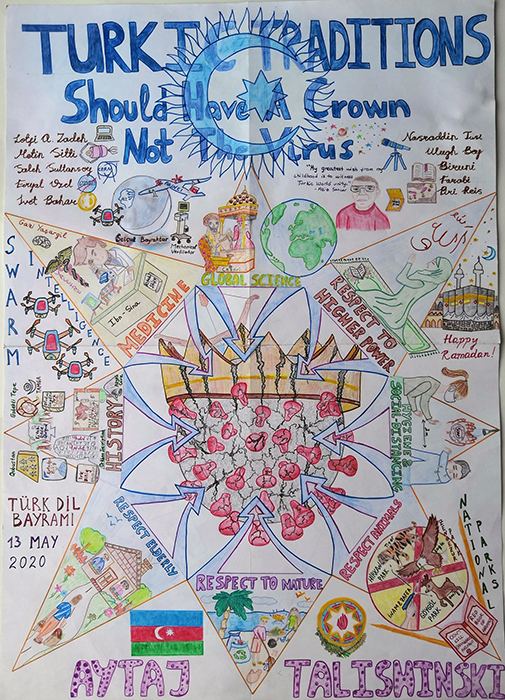 TURKIC TRADITIONS
Should Have A Crown
Not The Virus
Lotfi A. Zadeh
Metin Sitti
Saleh Sultansoy
Feryal Ozel
Ivet Bahar
Nasraddin Tusi
Ulugh Beg
Biruni
Farabi
Piri Reis
"My greatest wish from my
childhood is to witness
Turkic World unity."
Aziz Sancar
Selcuk Bayraktar
Mechanical
Ventilator
GLOBAL SCIENCE
Gazi Yasargil
Ibn-Sina
MEDICINE
RESPECT TO
HIGHER POWER
Happy
Ramadan!
SWARM
INTELLIGENCE
HISTORY
HYGIENE &
SOCIAL-DISTANCING
TÜRK DIL
BAYRAMI
13 MAY
2020
RESPECT ELDERLY
RESPECT ANIMALS
RESPECT TO NATURE
NATIONAL
PARKS
HIRKAN
PARK
GÖYGÖL
PARK
AYTAJ
TALISMINSKI